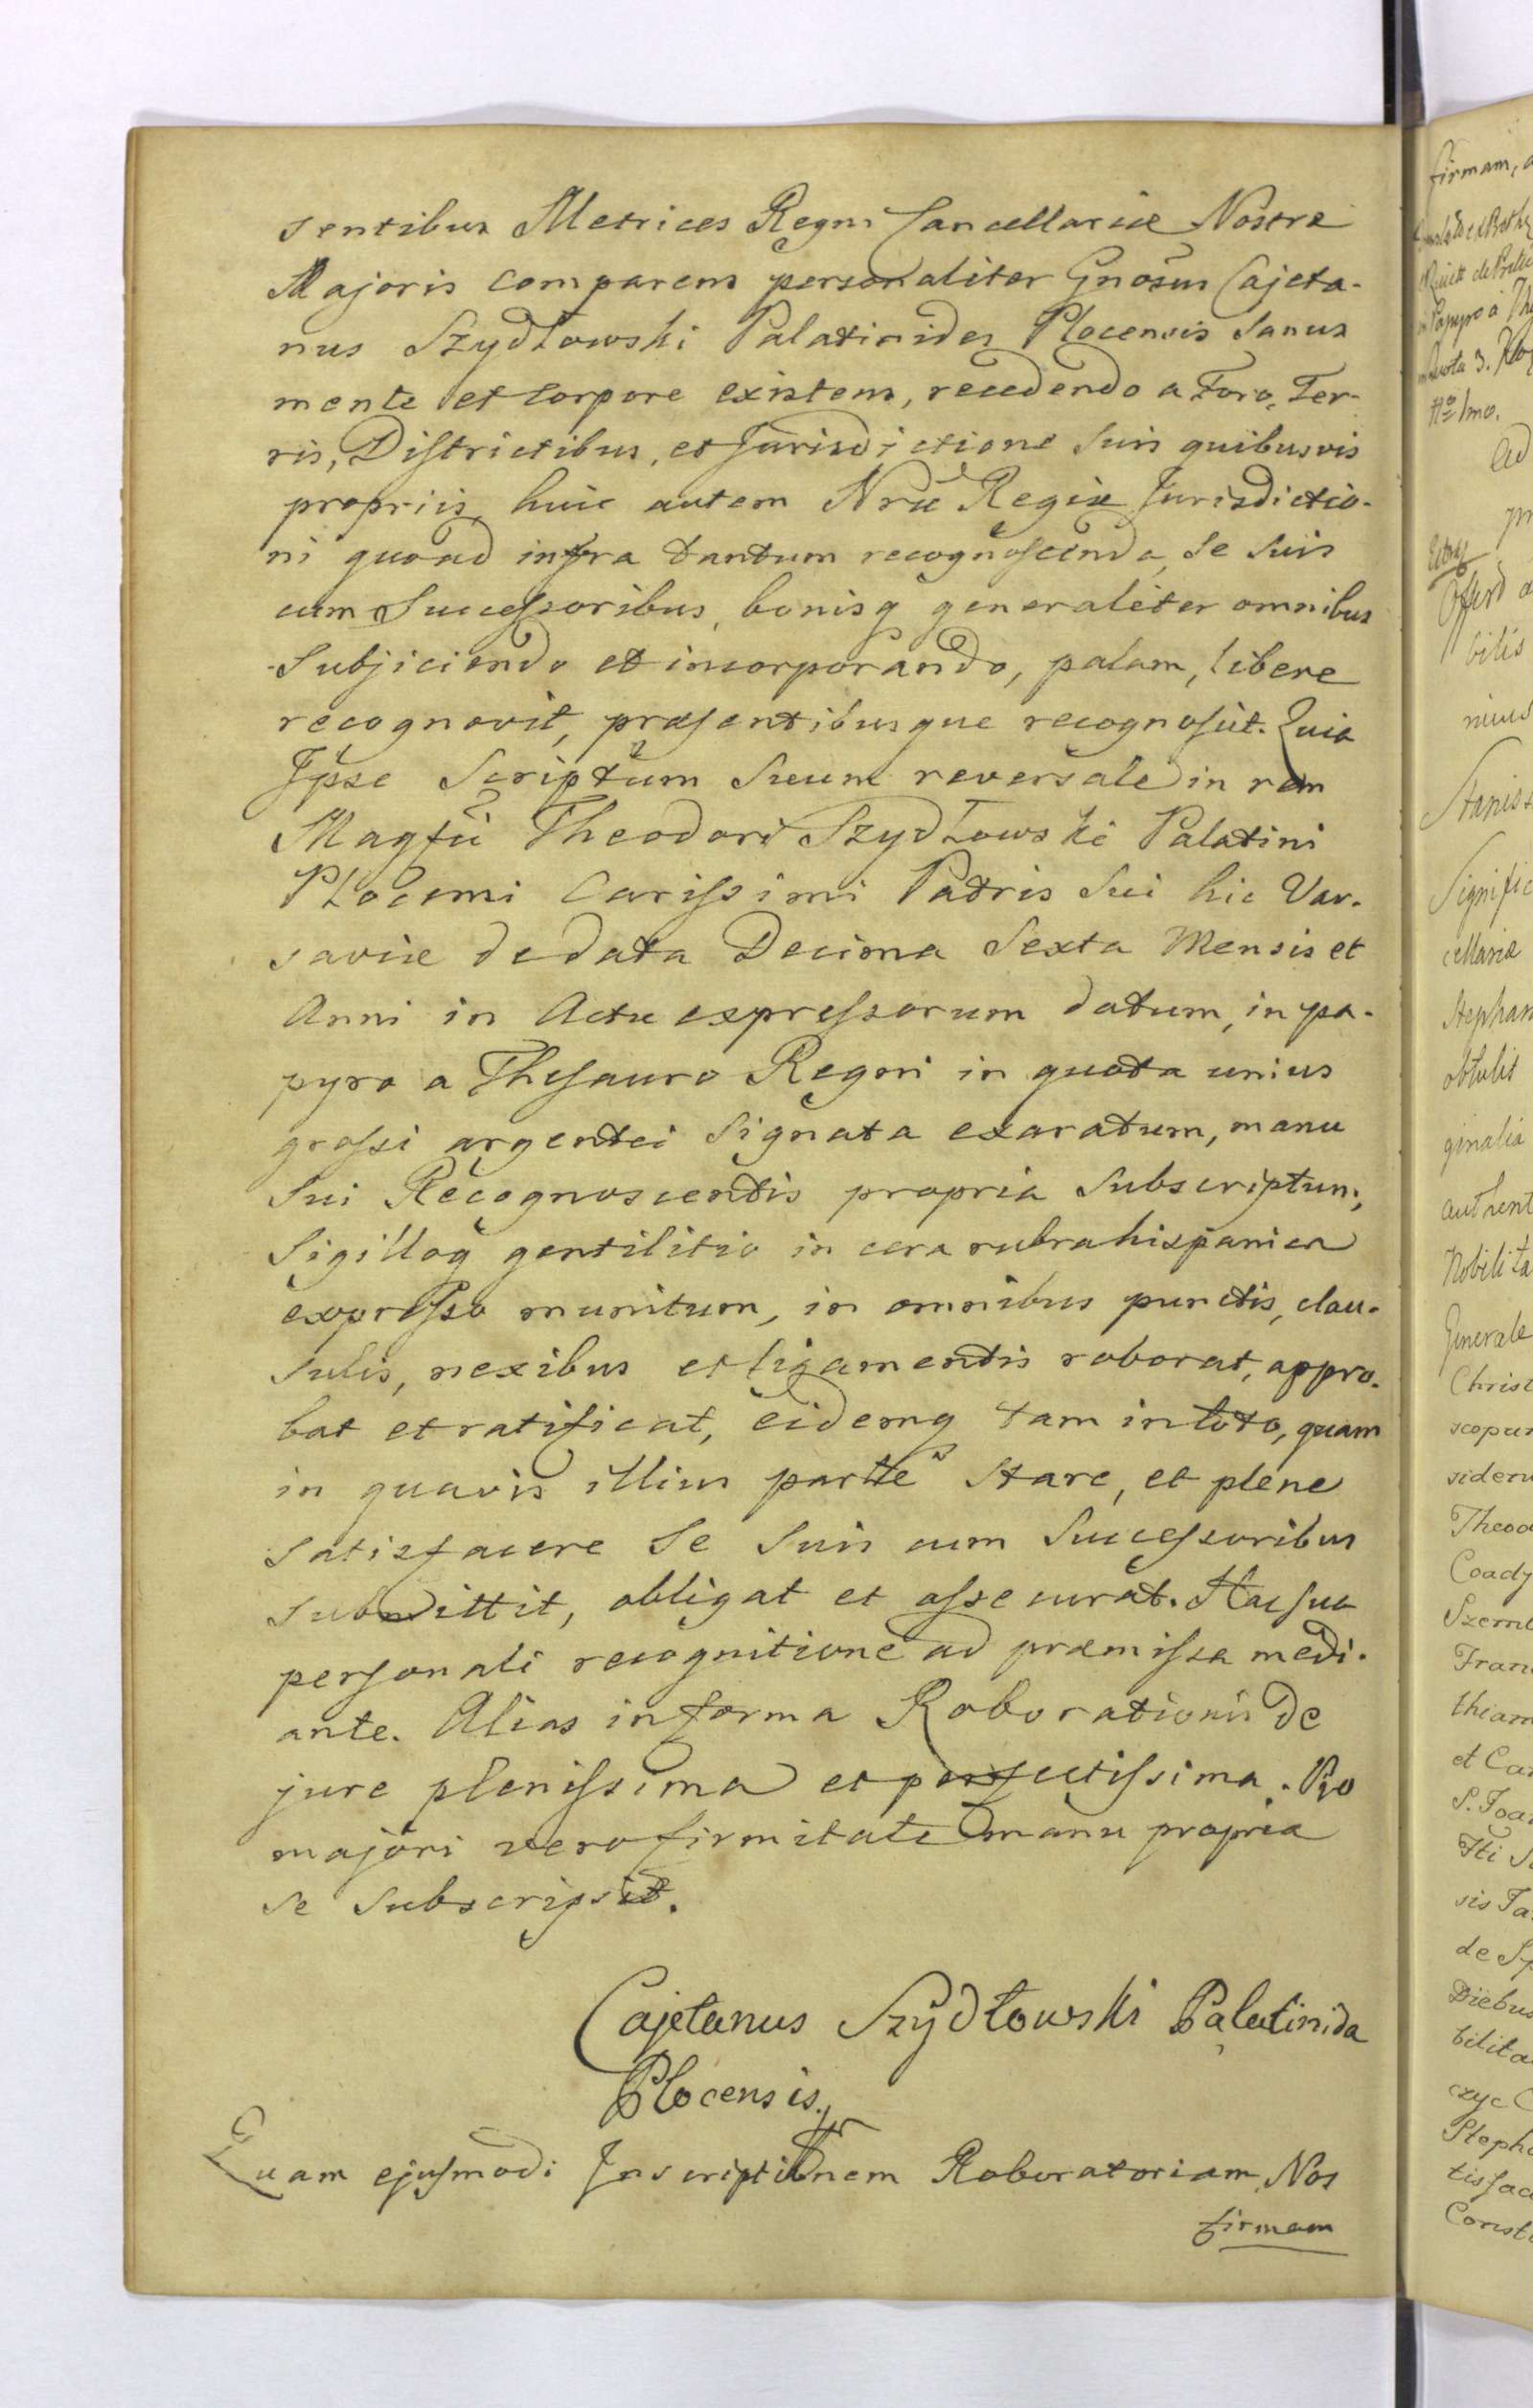 sentibus Metrices Regni Cancellariæ Nostræ
Majoris comparens personaliter Gnosus Cajeta-
nus Szydłowski Palatinides Plocensis Sanus
mente et corpore existens, recedendo a Foro, Ter-
ris, Districtibus, et Jurisdictione Suis quibusvis
propriis, huic autem Nræ Regiæ Jurisdictio-
ni quoad infra tantum recognoscenda, Se Suis
cum Successoribus, bonisq generaliter omnibus
Subjiciendo et incorporando, palam, libere
recognovit, præsentibusque recognoscit. Quia
Ipse Scriptum Suum reversale in rem
Magfci Theodori Szydłowski Palatini
Plocensi Carissimi Patris Sui hic Var-
saviæ de data Decima Sexta Mensis et
Anni in Actu expressorum datum, in pa-
pyro a Thesauro Regni in quota unius
grossi argentei Signata exaratum, manu
Sui Recognoscentis propria Subscriptum,
Sigilloq gentilitio in cera rubra hispanica
expresso munitum, in omnibus punctis, clau-
sulis, nexibus et ligamentis roborat, appro-
bat et ratificat, eidemq tam in toto, quam
in quavis illius parte Stare, et plene
Satisfacere Se Suis cum Successoribus
Submittit, obligat et assecurat. Hac Sua
personali recognitione ad præmissa medi-
ante. Alias in forma Roborationis de
jure plenissima et perfectissima. Pro
majori vero firmitate manu propria
se Subscripsit.
Cajetanus Szydłowski Palatinida
Plocensis.
Quam ejusmodi Inscriptionem Roboratoriam Nos
firmam
firmam,
bilis
Signific
cellariæ
Stephan
obtulit
ginalia
authent
Nobilita
Generale
Christ
scopus
Theod
Coadj
Fran
thiam
et Ca
S. Joa
Diebus
bilita
czyc C
Steph
tisfac
Const